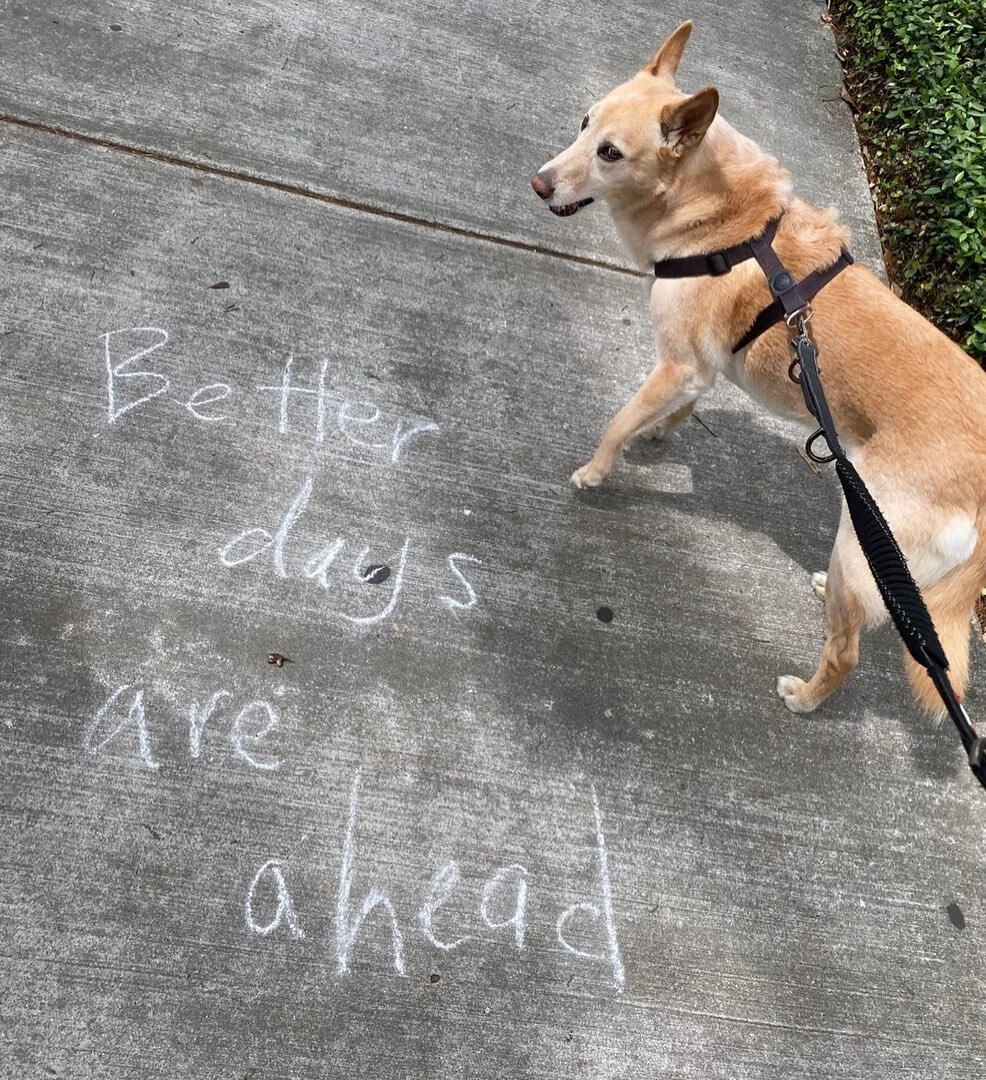 Better
days
are
ahead